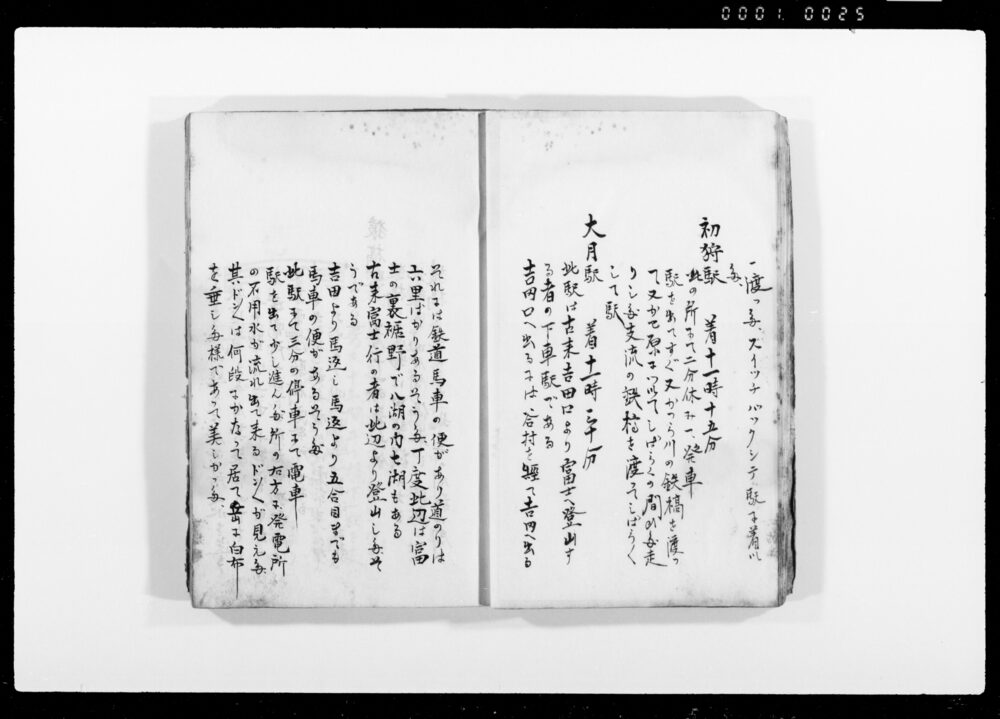 0001 0025
を渡つた、スイッチバックシテ駅に着い
た、
初狩駅 着十一時十五分
此の所にて二分休つて発車
駅を出てすぐ又かつら川の鉄橋を渡つ
て又かや原に以てしばらくの間の走
りした支流の鉄橋を渡てしばらく
して駅
大月駅 着十一時三十八分
此駅は古来吉田口より富士へ登山す
る者の下車駅である
吉田口へ出るには谷村を経て吉田へ出る
それには鉄道馬車の便があり道のりは
六里ばかりあるそうだ丁度此辺は富
士の裏裾野で八湖の内七湖もある
古来富士行の者は此辺より登山したそ
うである
吉田より馬返し馬返より五合目までも
馬車の便があるそうだ
此駅にて三分の停車にて電車
駅を出て少し進んだ所の右方に発電所
の不用水が流れ出て来るドンドンが見えた
其ドンドンは何段にかなつて居て岳に白布
を垂した様であつて美しかつた、